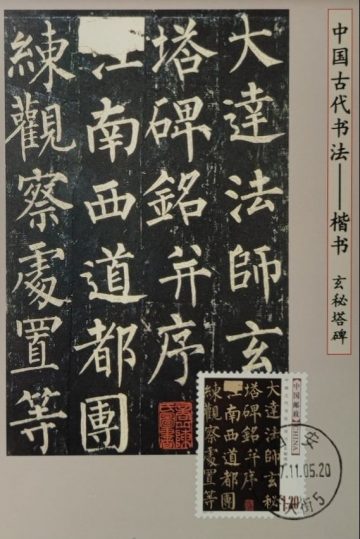 中国古代书法——楷书 玄秘塔碑
大達法師玄
塔碑銘并序
江南西道都團
練觀察處置等
中国邮政
CHINA
大達法師玄秘
塔碑銘并序
江南西道都團
練觀察處置等
1.20
7.11.05.20